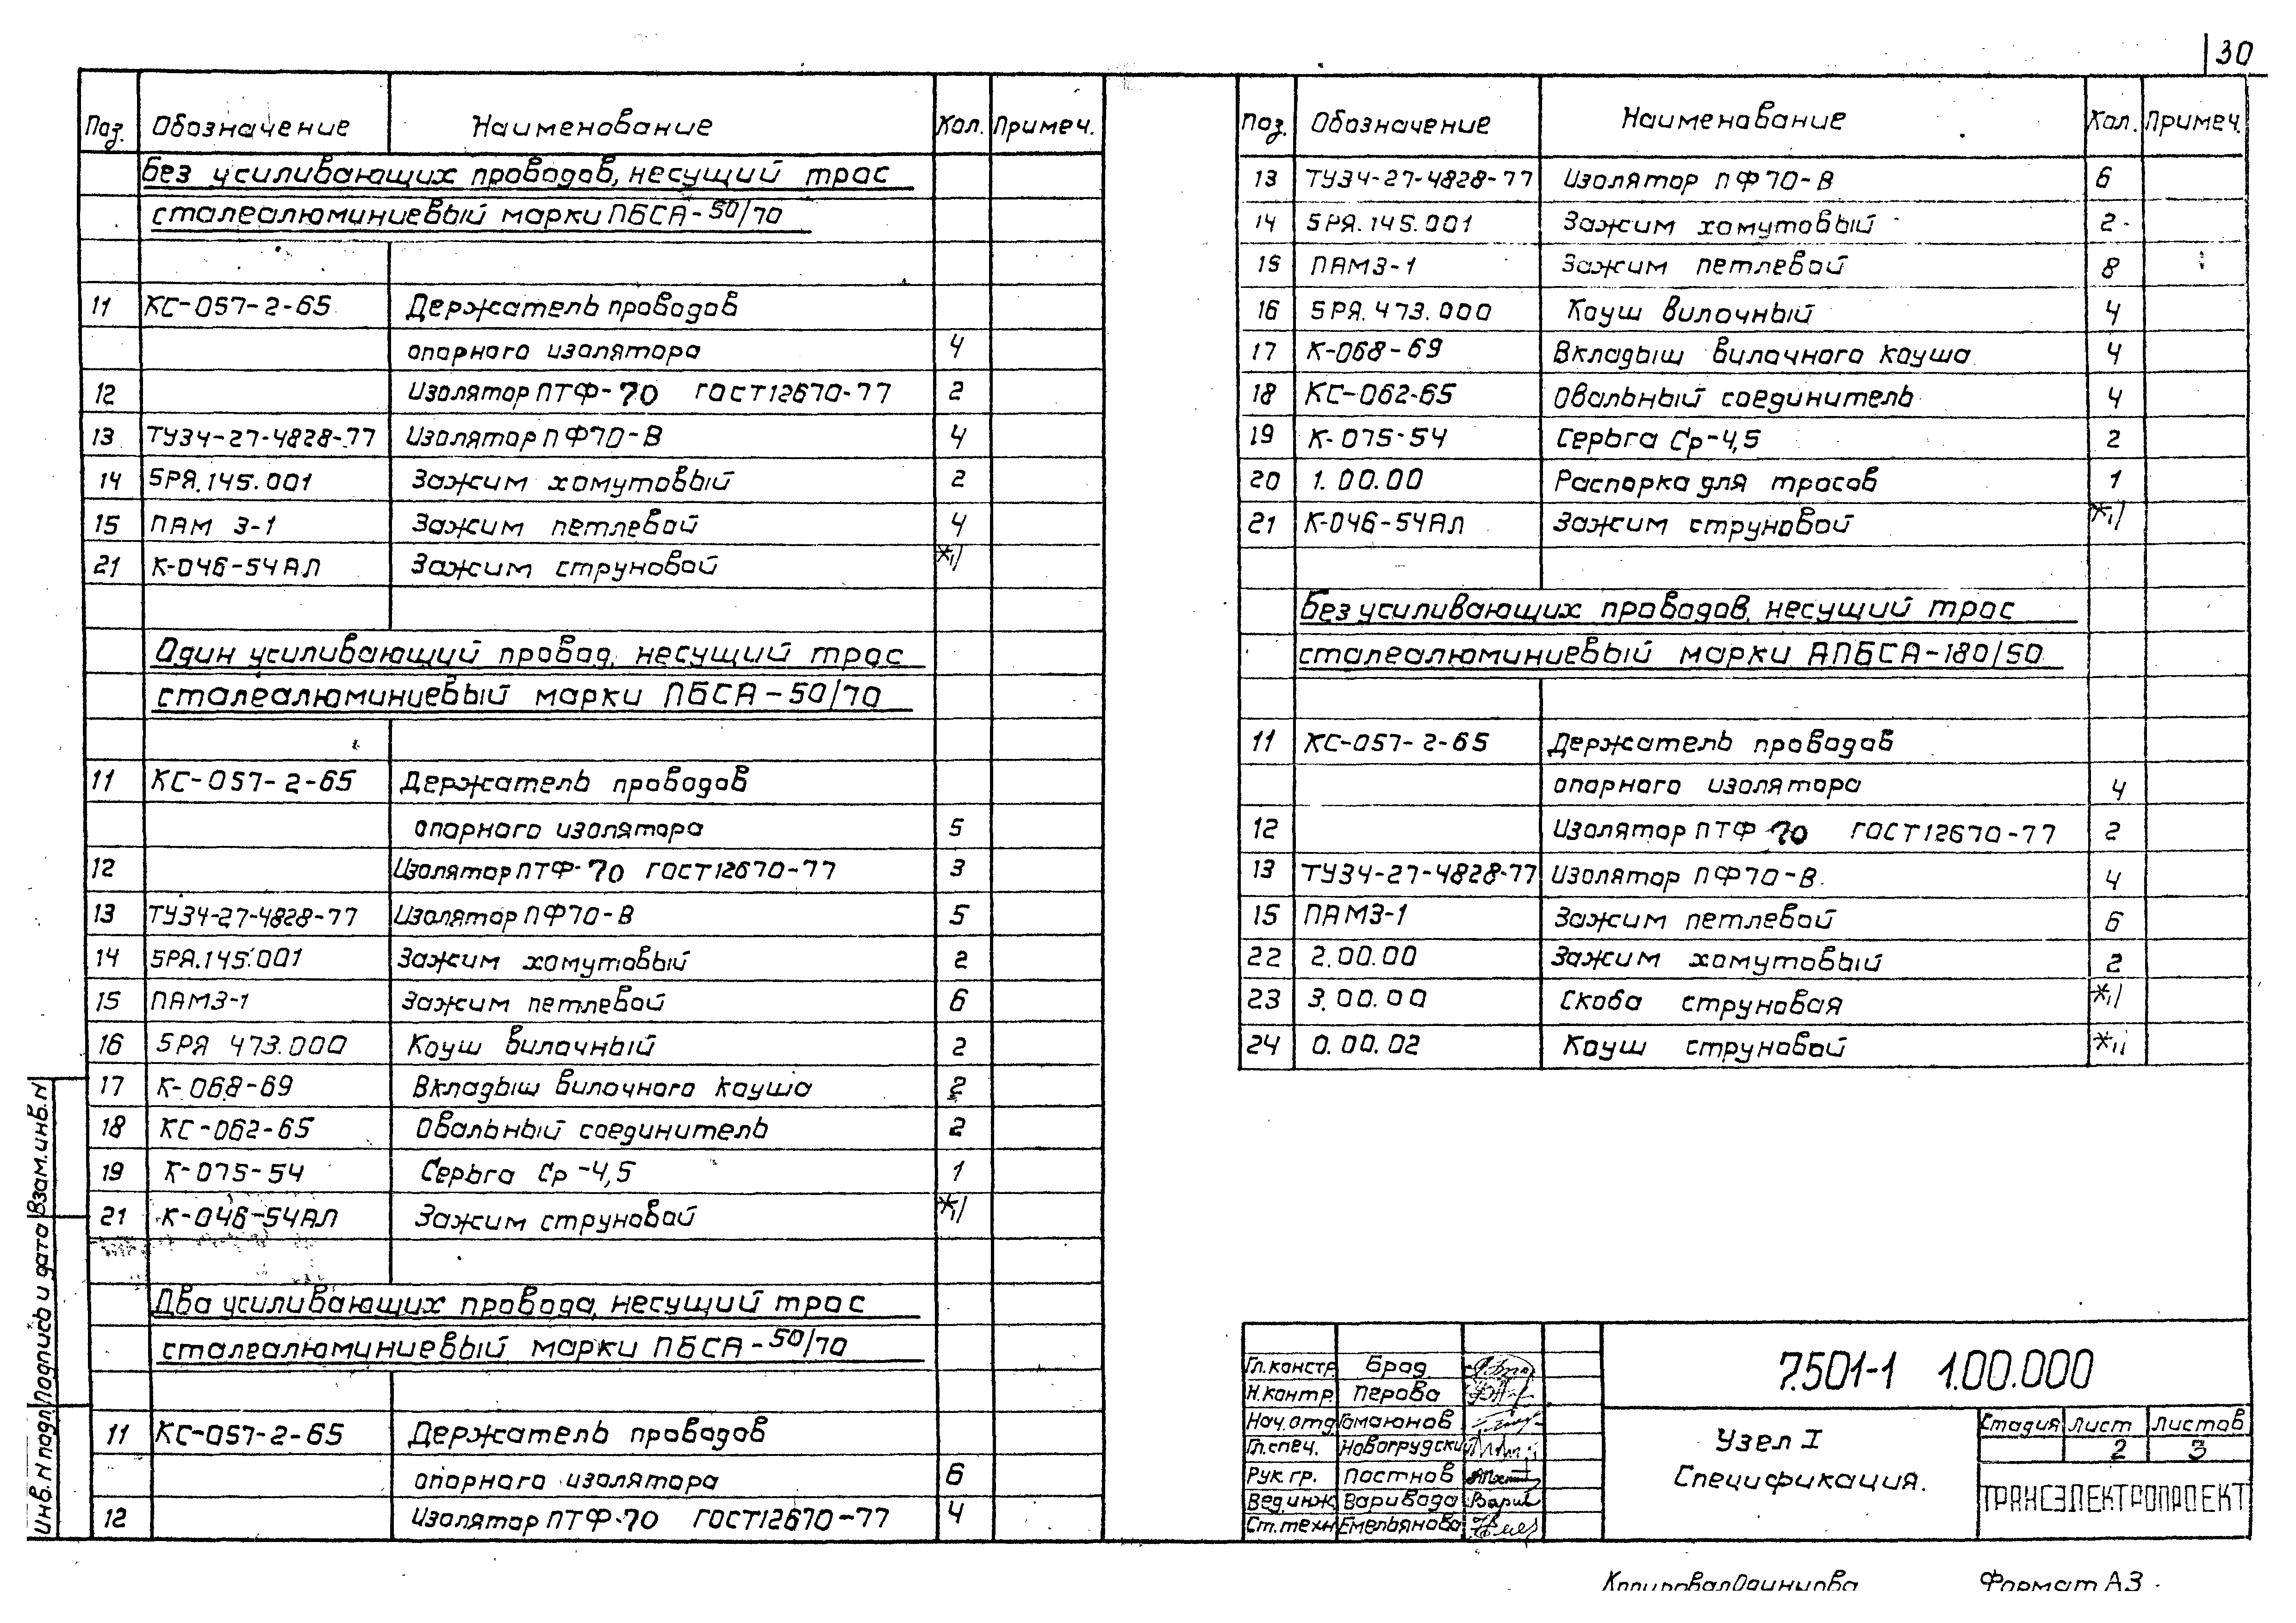 30
Поз. Обозначение Наименование Кол. Примеч.
Без усиливающих проводов, несущий трос
сталеалюминиевый марки ПБСА-50/70
11 КС-057-2-65 Держатель проводов
опорного изолятора 4
12 Изолятор ПТФ-70 ГОСТ12670-77 2
13 ТУ34-27-4828-77 Изолятор ПФ70-В 4
14 5РЯ.145.001 Зажим хомутовый 2
15 ПАМ 3-1 Зажим петлевой 4
21 К-046-54АЛ Зажим струновой *1)
Один усиливающий провод, несущий трос
сталеалюминиевый марки ПБСА-50/70
11 КС-057-2-65 Держатель проводов
опорного изолятора 5
12 Изолятор ПТФ-70 ГОСТ12670-77 3
13 ТУ34-27-4828-77 Изолятор ПФ70-В 5
14 5РЯ.145.001 Зажим хомутовый 2
15 ПАМ3-1 Зажим петлевой 6
16 5РЯ 473.000 Коуш вилочный 2
17 К-068-69 Вкладыш вилочного коуша 2
18 КС-062-65 Овальный соединитель 2
19 К-075-54 Серьга Ср-4,5 1
21 К-046-54АЛ Зажим струновой *1)
Два усиливающих провода, несущий трос
сталеалюминиевый марки ПБСА-50/70
11 КС-057-2-65 Держатель проводов
опорного изолятора 6
12 Изолятор ПТФ-70 ГОСТ12670-77 4
Поз. Обозначение Наименование Кол. Примеч.
13 ТУ34-27-4828-77 Изолятор ПФ70-В 6
14 5РЯ.145.001 Зажим хомутовый 2
15 ПАМ3-1 Зажим петлевой 8
16 5РЯ.473.000 Коуш вилочный 4
17 К-068-69 Вкладыш вилочного коуша 4
18 КС-062-65 Овальный соединитель 4
19 К-075-54 Серьга Ср-4,5 2
20 1.00.00 Распорка для тросов 1
21 К-046-54АЛ Зажим струновой *1)
Без усиливающих проводов, несущий трос
сталеалюминиевый марки АПБСА-180/50
11 КС-057-2-65 Держатель проводов
опорного изолятора 4
12 Изолятор ПТФ 70 ГОСТ12670-77 2
13 ТУ34-27-4828-77 Изолятор ПФ70-В 4
15 ПАМ3-1 Зажим петлевой 6
22 2.00.00 Зажим хомутовый 2
23 3.00.00 Скоба струновая *1)
24 0.00.02 Коуш струновой *1)
Инв. N подл. Подпись и дата Взам.инв.N
Гл.констр. Брод
Н.контр. Перова
Нач.отд. Гамаюнов
Гл.спец. Новогрудский
Рук.гр. Постнов
Вед.инж. Варивода
Ст.техн. Емельянова
7.501-1 1.00.000
Узел I
Спецификация.
Стадия Лист Листов
2 3
ТРАНСЭЛЕКТРОПРОЕКТ
Копировал Формат А3